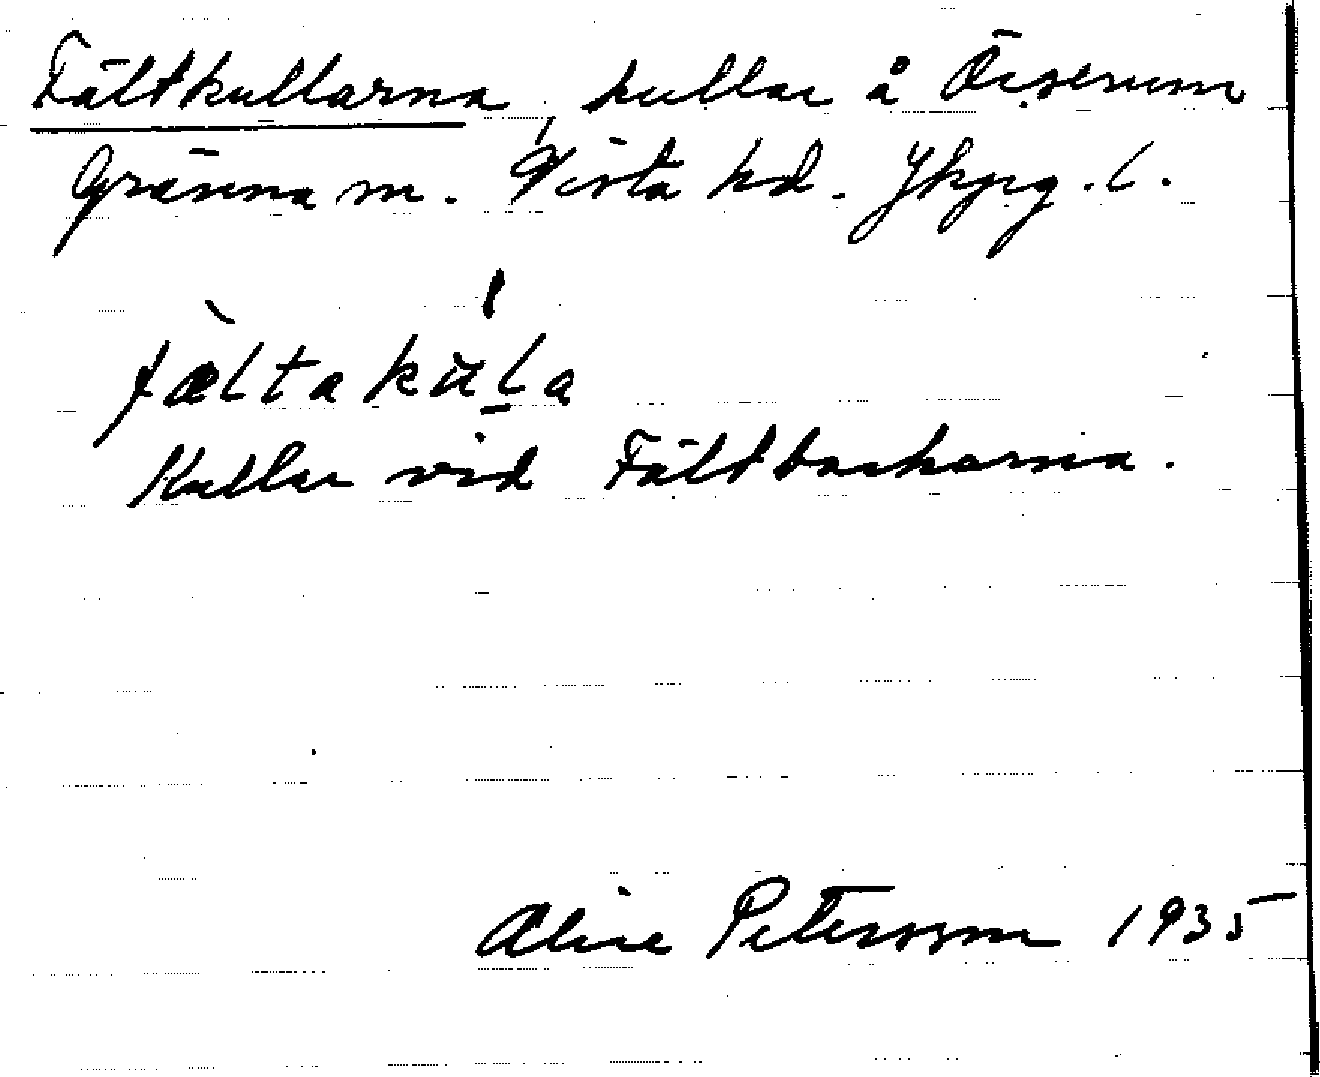 Fältkullarna, kullar å Örserum
Gränna sn. Vista hd. Jkpg. l.
fæltakụḷa
Kullar vid Fältbackarna.
Aline Petersson 1935